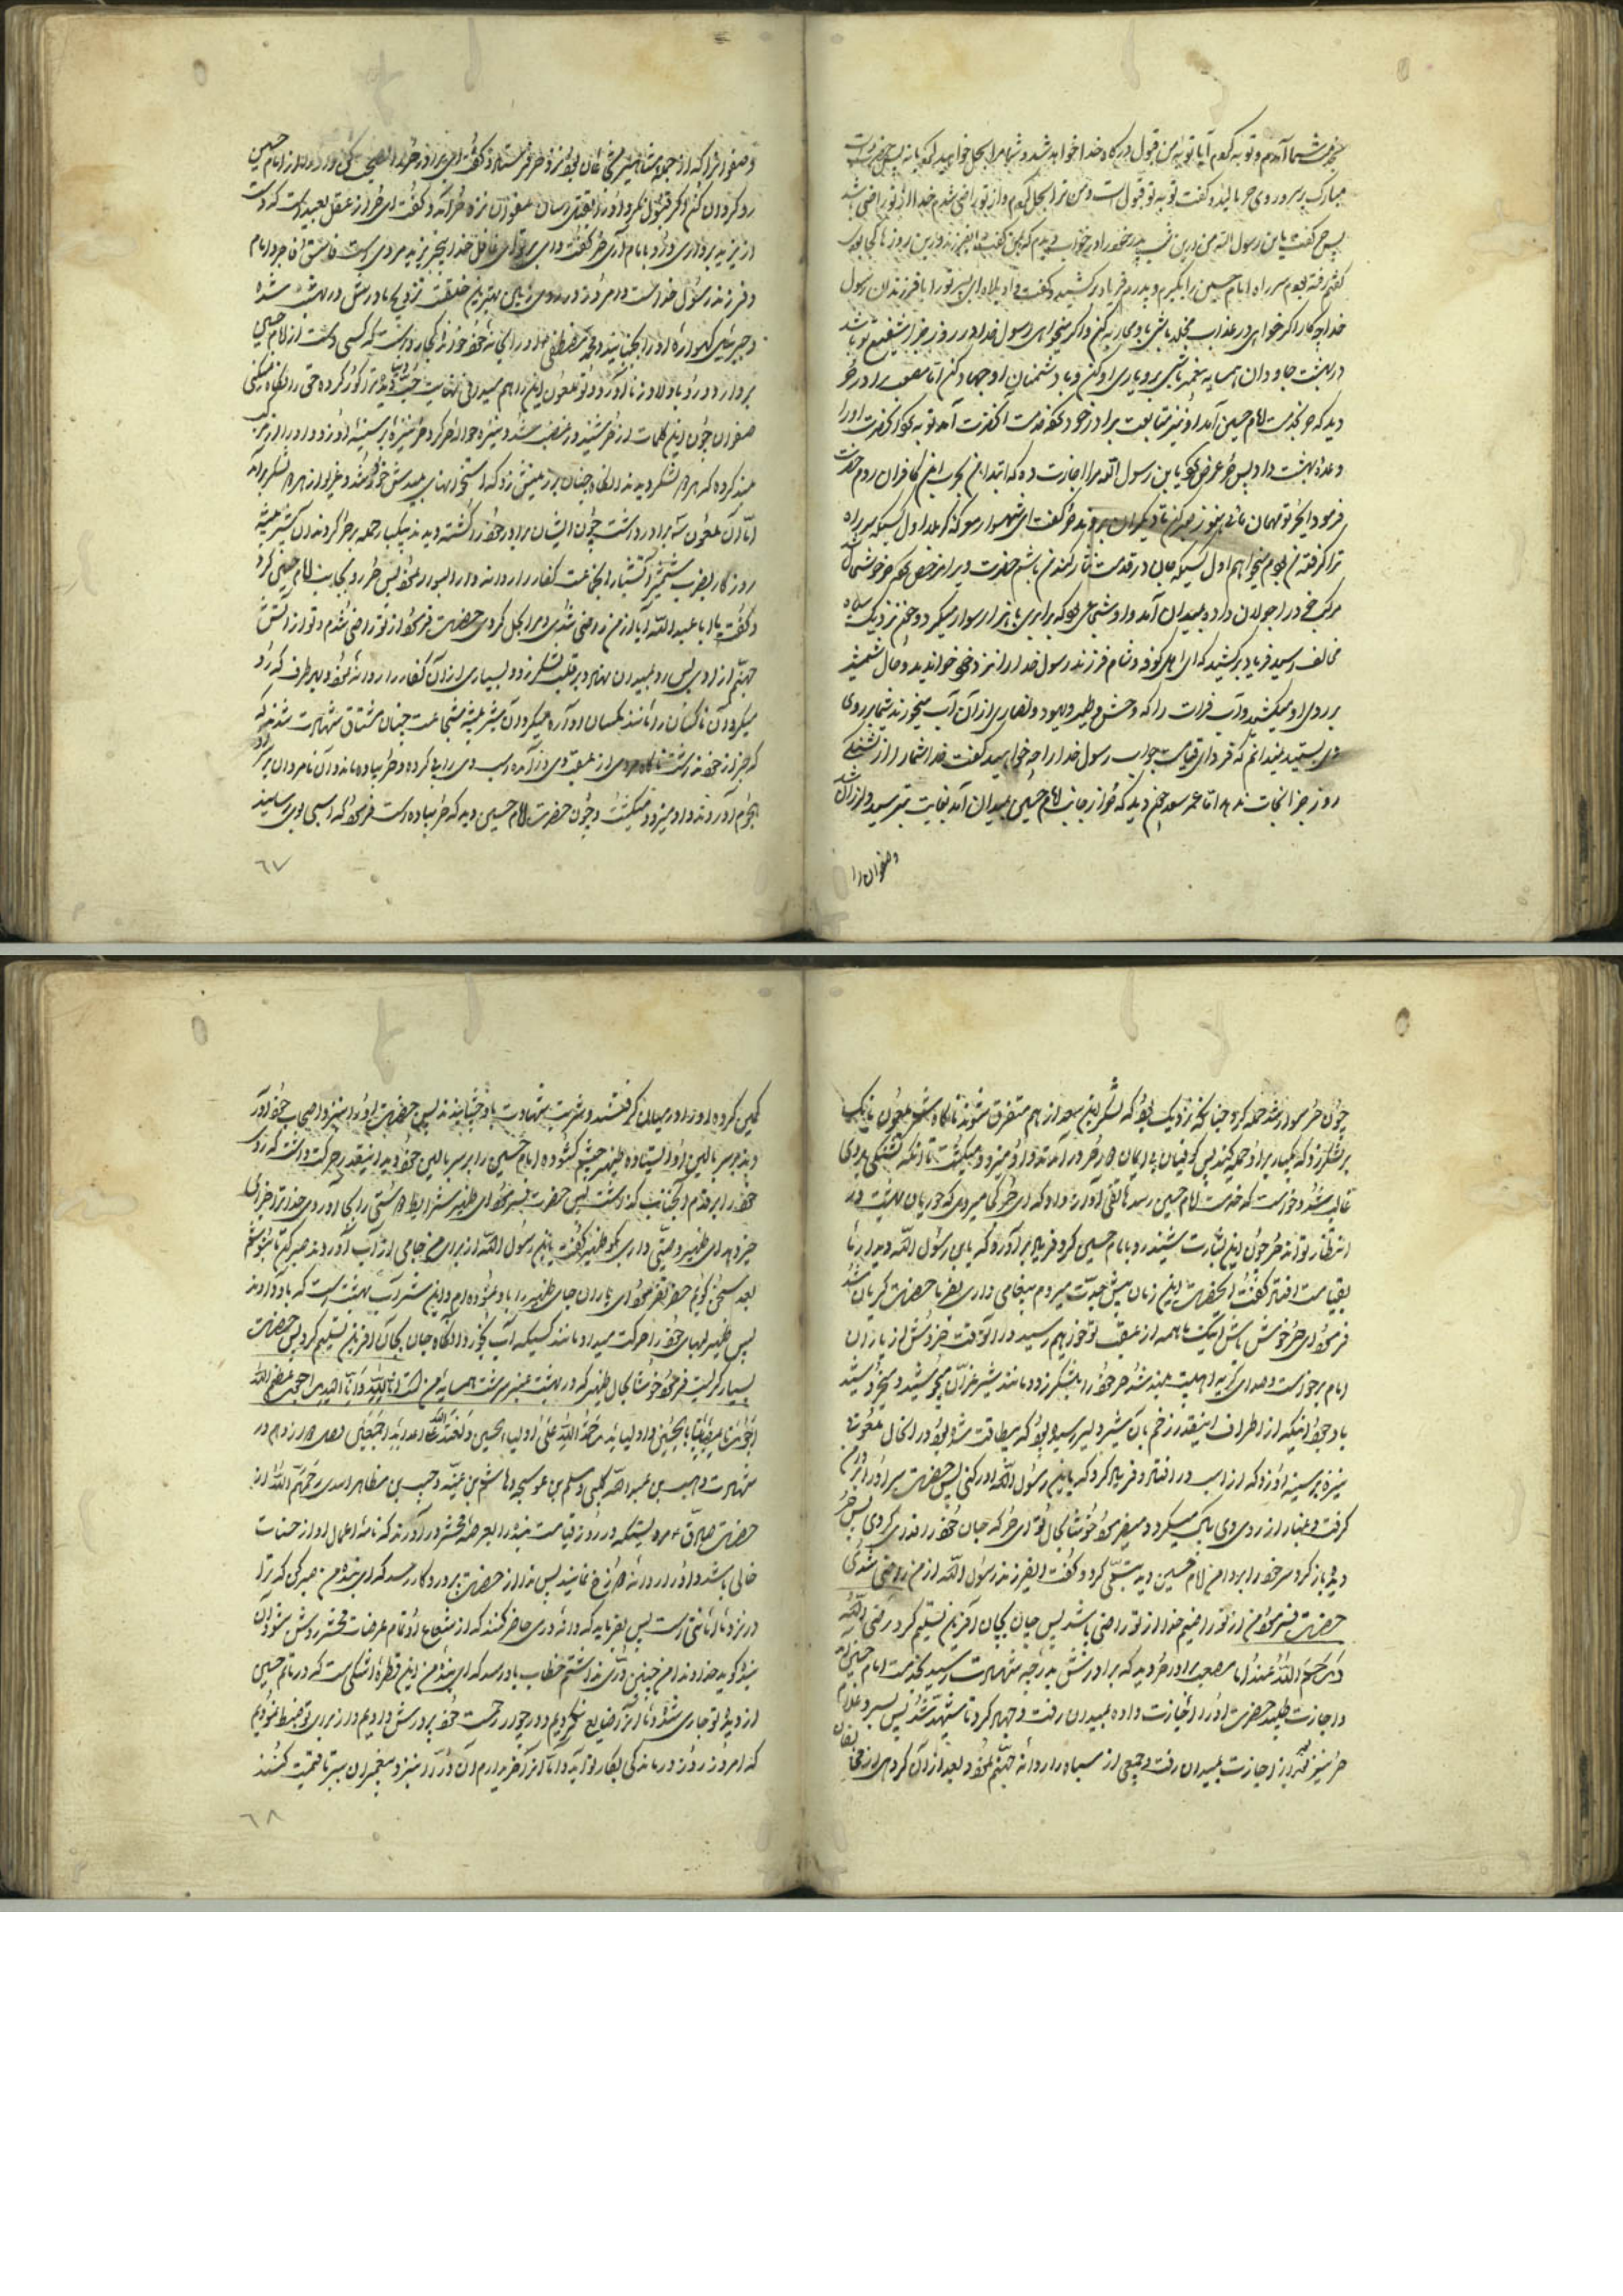 بخدمت شما آمدم و توبه کردم آیا توبه من قبول درگاه خدا خواهد شد و شما مرا بحل خواهید کرد یا نه پس حضرت دست
مبارک بر سر و روی حر مالید و گفت توبه تو قبول است و من ترا بحل کردم و از تو راضی شدم خدا از تو راضی باشد
پس حر گفت یا بن رسول الله من درین شب پدر خود را در خواب دیدم که بمن گفت ای فرزند درین روزها کجا بودی
گفتم رفته بودم سر راه امام حسین را بگیرم پدرم فریاد برکشید و گفت واویلاه ای پسر تو را با فرزندان رسول
خدا چه کار اگر خواهی در عذاب مخلد باشی با وی محاربه کن و اگر میخواهی رسول خدا در روز جزا شفیع تو باشد
در بهشت جاودان همسایه پیغمبر باشی برو یاری او کن و با دشمنان او جهاد کن اما مصعب برادر حر
دید که حر بخدمت امام حسین آمد او نیز متابعت برادر خود کرده بخدمت آنحضرت آمد توبه کرد آنحضرت او را
وعده بهشت داد پس حر عرض کرد یا بن رسول الله مرا اجازت ده که ابتدا من بحرب این کافران روم حضرت
فرمود ای حر تو مهمان مائی هنوز صبر کن تا دیگران بروند حر گفت ای شهسوار سوگند که بعد اول کسیکه سر راه
ترا گرفته من بودم میخواهم اول کسیکه جان در قدمت نثار کند من باشم حضرت ویرا مرخص کرد حر خوشحال شد
مرکب خود در جولان داد و بمیدان آمد و او شجاعی بود که برابری با هزار سوار میکرد و چون نزدیک سپاه
مخالف رسید فریاد برکشید که ای اهل کوفه و شام فرزند رسول خدا را نزد خود خواندید و حال شمشیر
بر روی او میکشید و آب فرات را که وحش و طیر و یهود و نصاری از آن آب میخورند شما بر روی
وی بستید نمیدانم که فردای قیامت جواب رسول خدا را چه خواهید گفت خدا شما را از تشنگی
روز جزا نجات ندهد اما عمر سعد چون دید که حر از جانب امام حسین بمیدان آمد بغایت بترسید و لرزان شد
و صفوان را
و صفوان را که از جمله مشاهیر شجاعان بود نزد حر فرستاد و گفت ای برادر حر را نصیحت کن و روی او را از امام حسین
رو گردان کن و اگر قبول نکرد او را بقتل رسان صفوان نزد حر آمد و گفت ای حر از عقل بعید است که دست
از یزید برداری و رو بامام آری حر گفت وای بر تو ای غافل خدا بیخبر یزید مردی است فاسق و فاجر و امام
و فرزند رسول خداست و امروز در روی زمین بهترین خلقست تزویج مادرش در بهشت شده
و جبرئیل گهواره او را بجنبانید و محمد مصطفی او را ریحانه خود خوانده کجا رواست که کسی دست از امام حسین
بردارد و رو باولاد زنا آورد و تو ملعون این را هم میدانی نهایت حب دنیا دیده ترا کور کرده حق را انکار میکنی
صفوان چون این کلمات از حر شنید در غضب شد و نیزه حواله حر کرد حر نیزه بر سینه او زد و او را از زین
بلند کرده که هر دو لشکر دیدند آنگاه چنان بر زمینش زد که استخوانهای بدنش خورد شد و غریو از هر دو لشکر برآمد
اما آن ملعون سه برادر داشت چون ایشان برادر خود را کشته دیدند بیکبار حمله بر حر کردند آن شیر بیشه
روزگار بضرب شمشیر آتشبار آنجماعت کفار را روانه دار البوار نمود پس حر رو بجانب امام حسین کرد
و گفت یا ابا عبد الله آیا از من راضی شدی و مرا بحل کردی حضرت فرمود از تو راضی شدم و تو از آتش
جهنم آزادی پس رو بمیدان نهاد و بر قلب لشکر زد و بسیاری از آن کفار را روانه نمود و بهر طرف که رو
میکرد آن ناکسان را مانند مگسان آواره میکرد آن شیر بیشه شجاعت چنان مشتاق شهادت شده که
که خبر از خود نداشت ناگاه مردی از عقب وی درآمده اسب وی را پی کرده و حر پیاده مانده آن نامردان بر او
هجوم آوردند و او میزد و میکشت و چون حضرت امام حسین دید که حر پیاده است فرمود که اسبی بوی رسانید
٦٧
چون حر سوار شد حمله کرد چنانکه نزدیک بود که لشکر ابن سعد از هم متفرق شوند ناگاه شمر ملعون بانک
بر لشکر زد که بیکبار بر او حمله کنید پس کوفیان بی ایمان دور حر درآمدند و او میزد و میکشت تا آنکه تشنگی بر وی
غالب شد و خواست که خدمت امام حسین رسد هاتفی آواز داد که ای حر کجا میروی که حوریان بهشت در
انتظار تواند حر چون این بشارت شنید رو بامام حسین کرد و فریاد برآورد که یا بن رسول الله دیدار ما
بقیامت افتاد گفت آنحضرت این زمان پیش جدت میروم پیغامی داری بفرما حضرت گریان شد
فرمود ای حر خوش باش که اینک ما همه از عقب تو خواهیم رسید در آنوقت خروش از یاران
امام برخواست و صدای گریه اهلبیت بلند شد حر خود را بلشکر زد و مانند شیر غران میجوشید و میخروشید
با وجود آنکه از اطراف اینقدر زخم بآن شیر دلیر رسیده بود که بیطاقت شده بود در آنحال ملعونی
نیزه بر سینه او زد که از اسب در افتاد و فریاد کرد که یا بن رسول الله ادرکنی پس حضرت سر او را بر دامن
گرفت و غبار از روی وی پاک میکرد و میفرمود خوشا بحال تو ای حر که جان خود را فدای کردی پس حر
دیده باز کرد سر خود را بر دامن امام حسین دید تبسمی کرد و گفت ای فرزند رسول الله از من راضی شدی
حضرت فرمود من از تو راضیم خدا از تو راضی باشد پس جان بجان آفرین تسلیم کرد رضی الله
عنه اما مصعب برادر حر دید که برادرش بدرجه شهادت رسید بخدمت امام حسین آمد
و اجازت طلبید حضرت او را اجازت داده بمیدان رفت و جهاد کرد تا شهید شد پس پسر و غلام
حر نیز اجازت بمیدان رفته جمعی از سپاه را روانه جهنم نمود و بعد از آن گروهی از مخالفان
کمین کرده او را در میان گرفتند و شربت شهادت باو چشانیدند پس حضرت او را نیز نزد اصحاب خود آورد
و بر سر بالین او ایستاده ظهیر چشم گشوده امام حسین را بر سر بالین خود دید اینقدر حرکت داشت که روی
خود را بر قدم آنجناب گذاشت پس حضرت فرمود ای ظهیر شرایط دوستی را بجا آوردی خدا ترا جزای
خیر دهد ای ظهیر وصیتی داری بگو ظهیر گفت یا بن رسول الله از برای من جامی از آب آوردند صبر کن تا بنوشم
بعد سخن گویم حضرت فرمود ای یاران جای ظهیر را باو نموده اند و این شراب بهشت است که باو دادند
پس ظهیر لبهای خود را حرکت میداد مانند کسیکه آب بخورد آنگاه جان بجان آفرین تسلیم کرد پس حضرت
بسیار گریست فرمود خوشا بحال ظهیر که در بهشت عنبر سرشت همسایه من است انا لله و انا الیه راجعون عظم الله
اجورنا بمصابنا بالحسین و اولیائه رحمة الله علی اولیاء الحسین و لعنة الله علی اعدائه اجمعین فصل دوازدهم در
شهادت وهب بن عبد الله کلبی و مسلم بن عوسجه و هاشم بن عتبه و حبیب بن مظاهر اسدی رحمهم الله از
حضرت صادق ع مرویستکه در روز قیامت بنده را بعرصه محشر درآورند که نامه اعمال او از حسنات
خالی باشد و او را روانه دوزخ نمایند پس ندا از حضرت پروردگار رسد که ای بنده من صبر کن که ترا
در نزد ما امانتی است پس بفرماید که دانه دری حاضر کنند که از شعاع او تمام عرصات محشر روشن شود آن
بنده گوید خداوندا من چنین دری نداشتم خطاب باو رسد که ای بنده من این قطره اشکی است که در ماتم حسین
از دیده تو جاری شد و ما آنرا ضایع نکردیم و در جوار رحمت خود پرورش دادیم و از برای تو ضبط نمودیم
که امروز روز درماندگی بکار تو آید و ما آنرا خریداریم آن در را نزد پیغمبران ببر تا قیمت کنند
٦٨